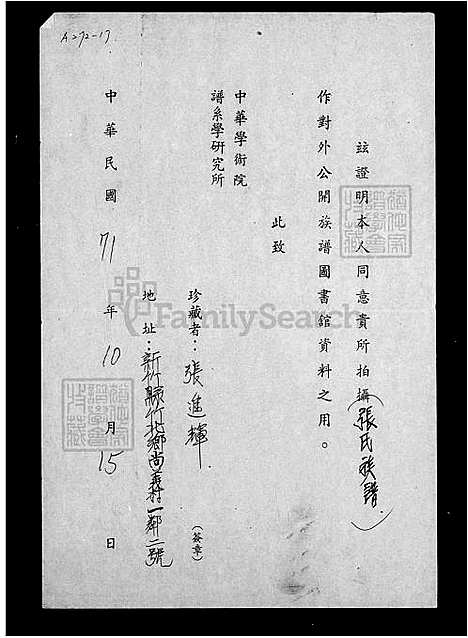 A272-17
茲證明本人同意貴所拍攝(張氏族譜)
作對外公開族譜圖書館資料之用。
此致
中華學術院
譜系學研究所
珍藏者：張進輝(簽章)
地址：新竹縣竹北鄉尚義村一鄰二號
中華民國71年10月15日
FamilySearch